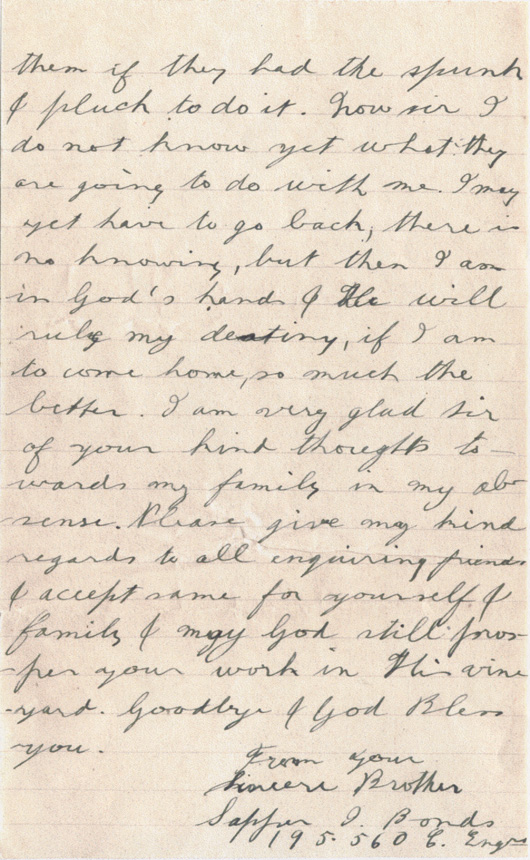 them if they had the spunk
& pluck to do it. Now sir I
do not know yet what they
are going to do with me. I may
yet have to go back, there is
no knowing, but then I am
in God's hands & He will
rule my destiny, if I am
to come home, so much the
better. I am very glad sir
of your kind thoughts to-
wards my family in my ab-
sense. Please give my kind
regards to all enquiring friends
& accept same for yourself &
family & may God still pros-
-per your work in His vine
-yard. Goodbye & God Bless
you.
From your
Sincere Brother
Sapper J. Bonds
195560 C. Engrs